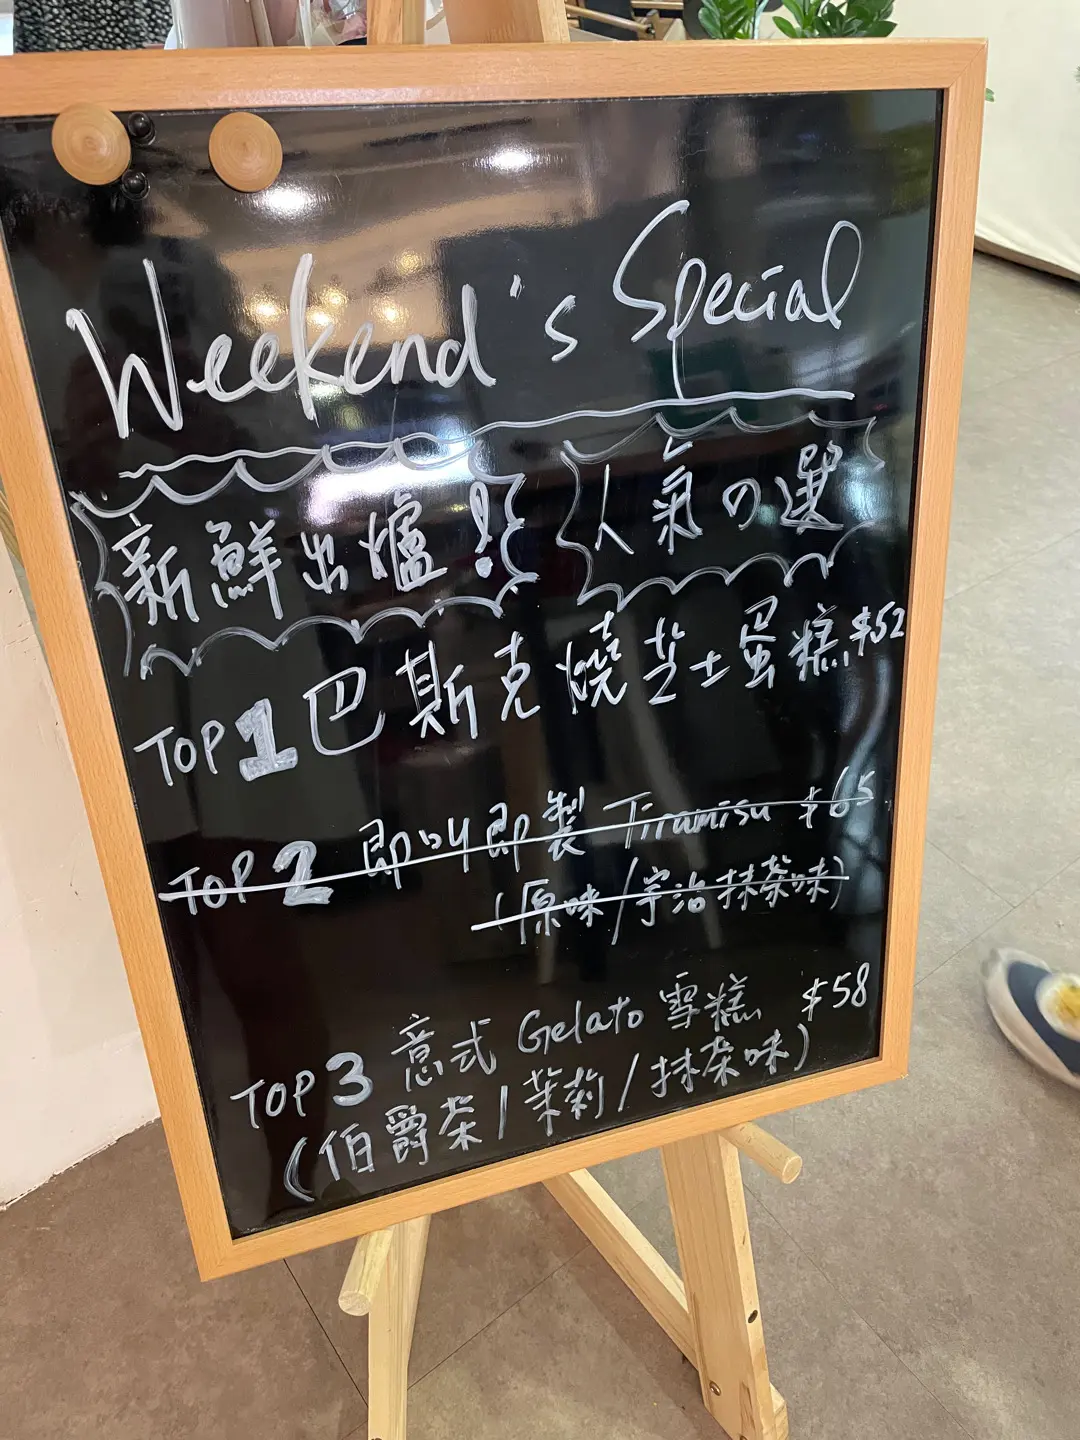 Weekend's Special
新鮮出爐! 人氣の選
TOP 1 巴斯克燒芝士蛋糕 $52
TOP 2 即叫即製 Tiramisu $65
(原味/宇治抹茶味)
TOP 3 意式 Gelato 雪糕 $58
(伯爵茶/茉莉/抹茶味)